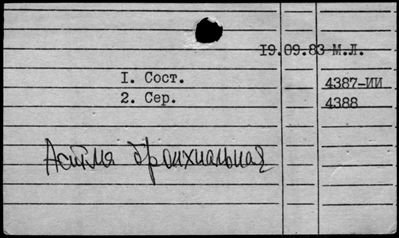 19.09.83 М.Л.
I. Сост. 4387-ИИ
2. Сер. 4388
Астмя бронхиальная